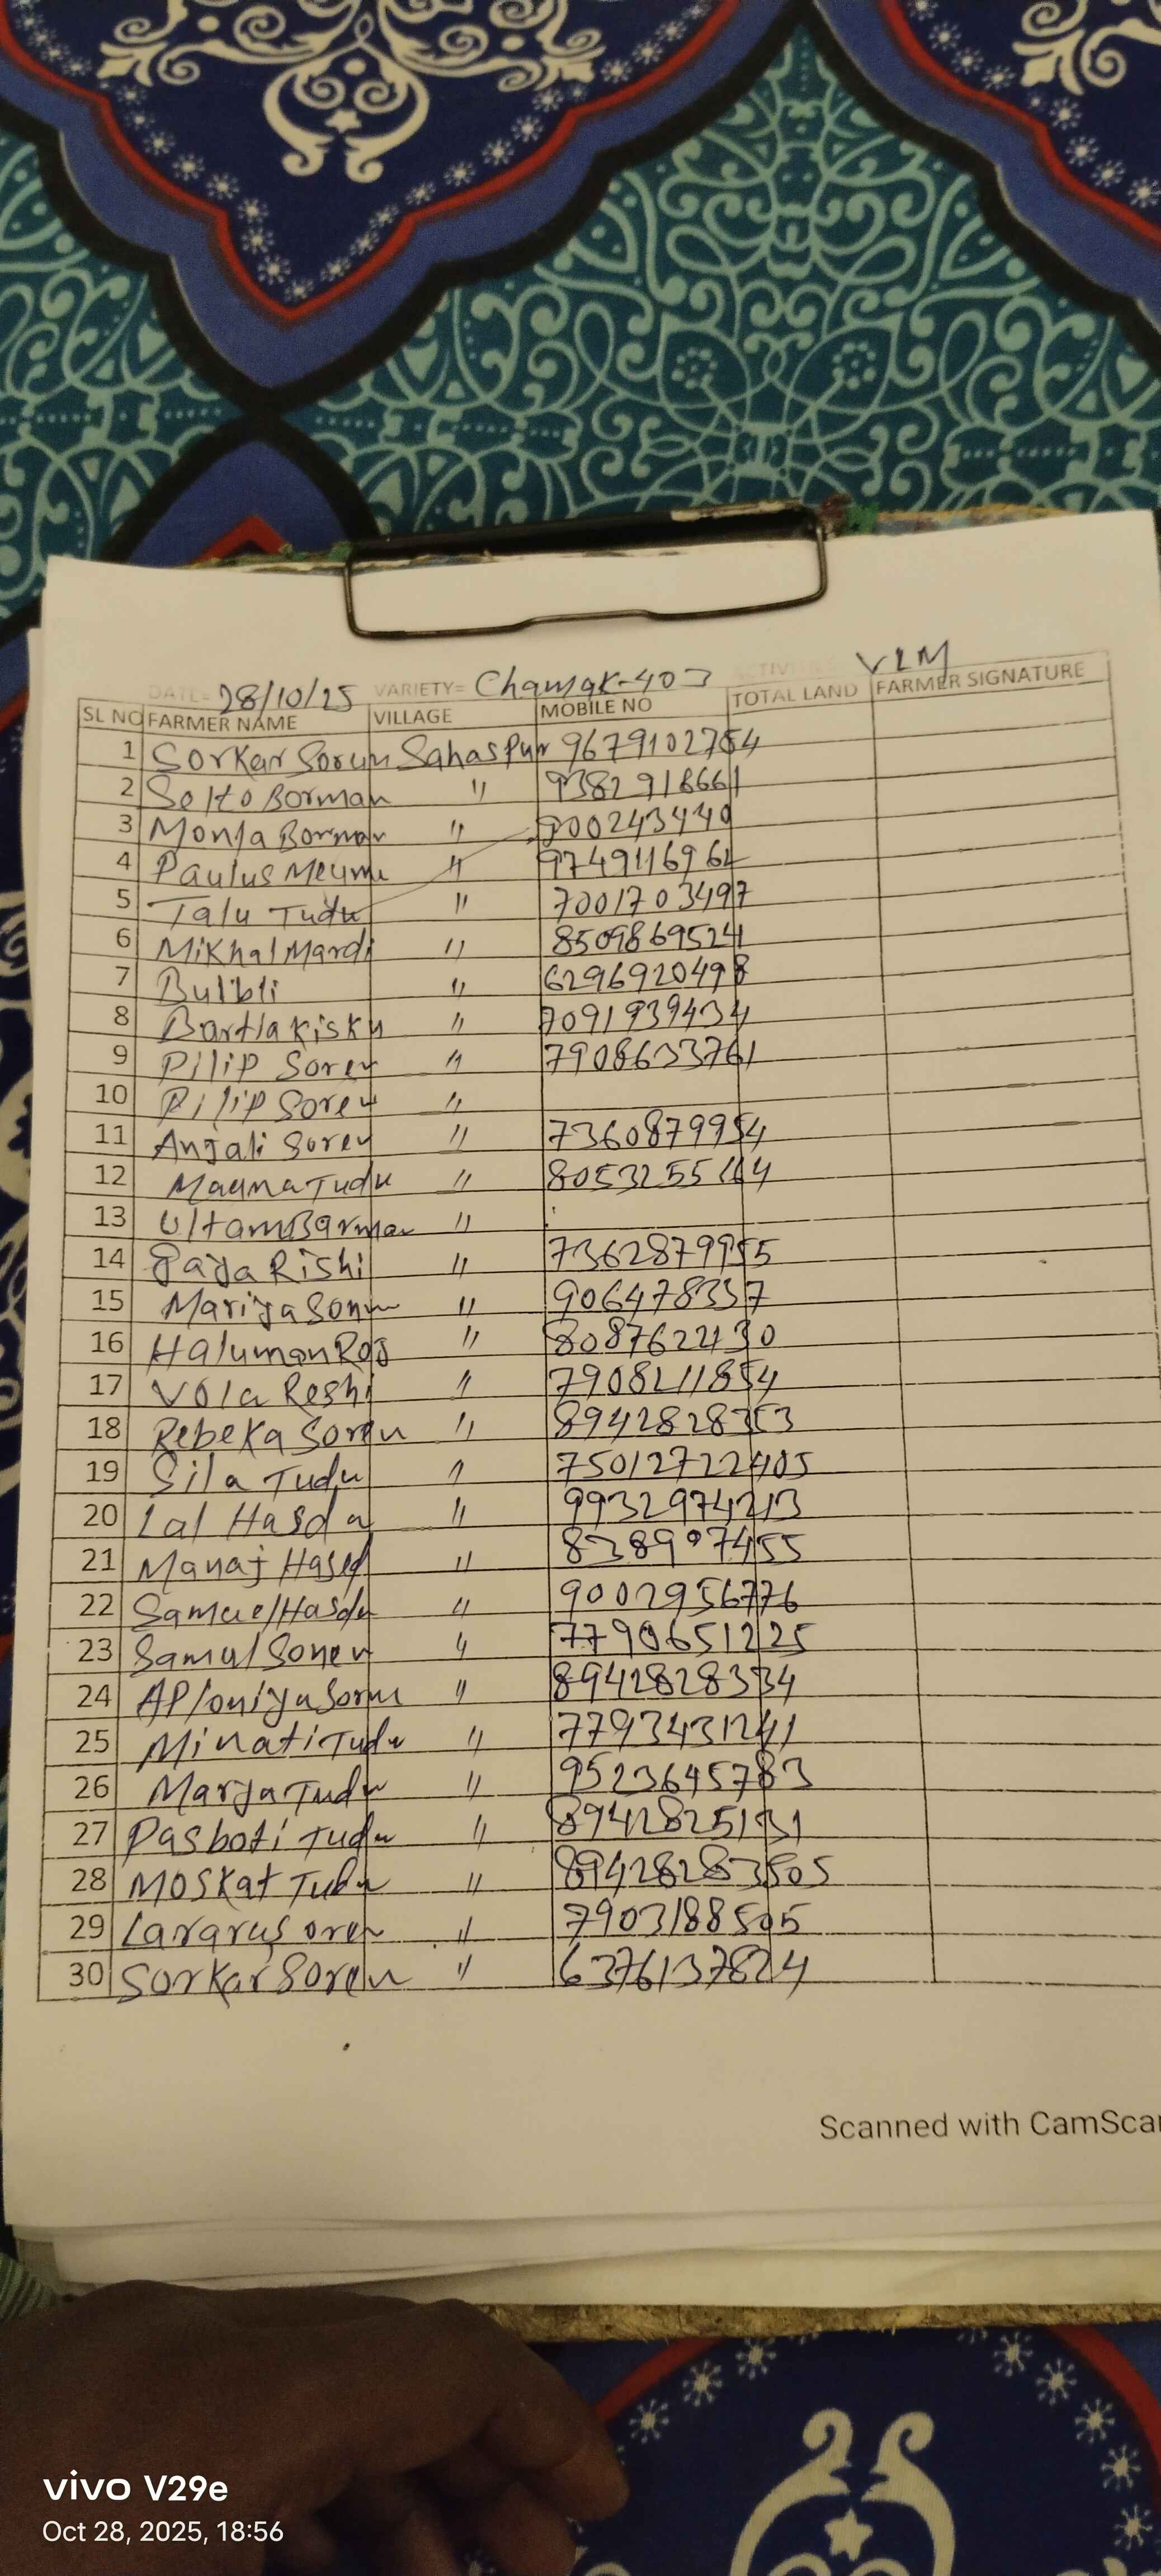 DATE= 28/10/25 VARIETY= Chamak-403 ACTIVITIES: VLM
SL NO FARMER NAME VILLAGE MOBILE NO TOTAL LAND FARMER SIGNATURE
1 Sorkar Sorun Sahaspur 9679102754
2 Solto Borman " 9382918661
3 Monja Borman " 900243440
4 Paulus Meumu " 9749116964
5 Talu Tudu " 7001703497
6 Mikhal Mardi " 8509869524
7 Bulbli " 6296920498
8 Bartla kisku " 7091939434
9 Pilip Soren " 7908633761
10 Pilip Soren "
11 Anjali Soren " 7360879954
12 Mauna Tudu " 8053255164
13 Uttam Barman "
14 Jaya Rishi " 7362879955
15 Mariya Soren " 906478337
16 Haluman Roj " 8087622430
17 Vola Reshi " 7908211854
18 Rebeka Soren " 8942828353
19 Sila Tudu " 75012722405
20 Lal Hasda " 9932974213
21 Manaj Hased " 8389907455
22 Samuel Hasda " 9002956776
23 Samul Sonen " 7790651225
24 Aploniya Sorun " 8942828334
25 Minati Tudu " 7793431241
26 Marja Tudu " 9523645783
27 Pasboti Tudu " 8942825131
28 Moskat Tudu " 89428283505
29 Lararus oren " 7903188505
30 Sorkar Soren " 6376137824
Scanned with CamScan
vivo V29e
Oct 28, 2025, 18:56